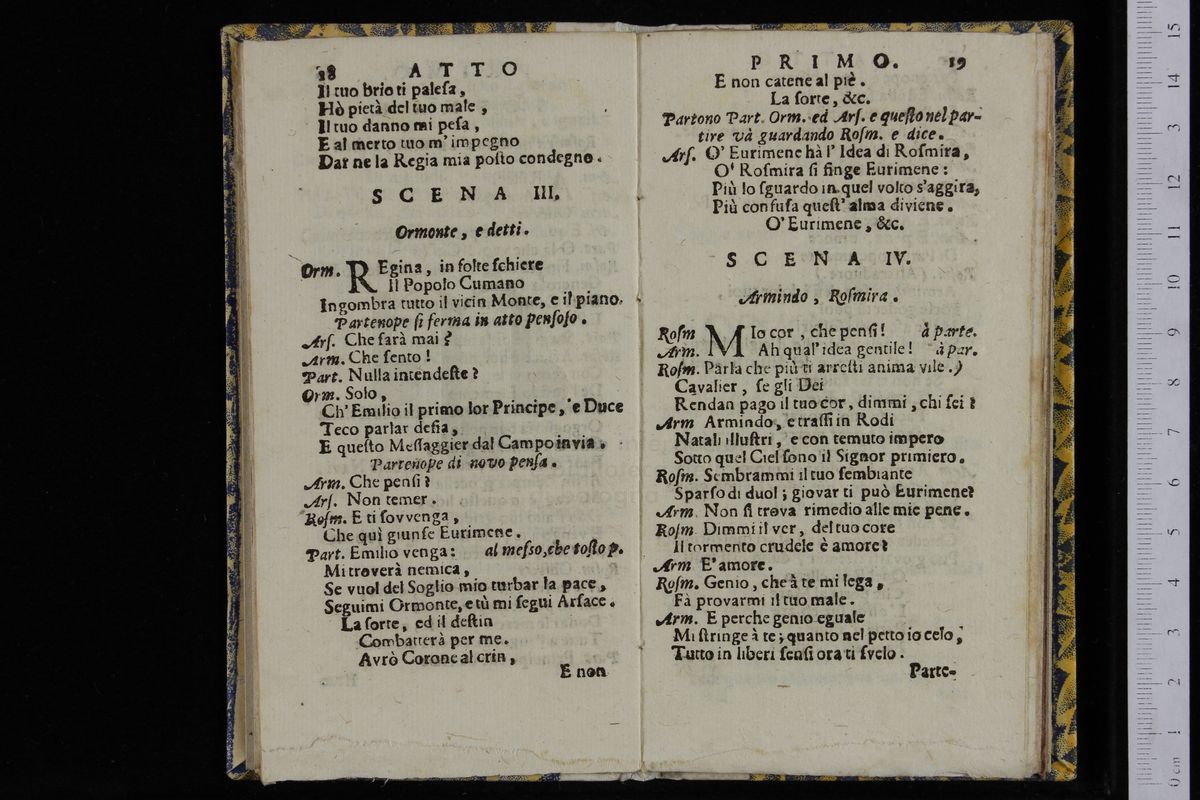 18 ATTO
Il tuo brio ti paleſa,
Hò pietà del tuo male,
Il tuo danno mi peſa,
E al merto tuo m' impegno
Dar ne la Regia mia poſto condegno.
SCENA III.
Ormonte, e detti.
Orm. REgina, in folte ſchiere
Il Popolo Cumano
Ingombra tutto il vicin Monte, e il piano.
Partenope ſi ferma in atto penſoſo.
Arſ. Che farà mai?
Arm. Che ſento!
Part. Nulla intendeſte?
Orm. Solo,
Ch' Emilio il primo lor Principe, e Duce
Teco parlar deſia,
E queſto Meſſaggier dal Campo invia.
Partenope di novo penſa.
Arm. Che penſi?
Arſ. Non temer.
Roſm. E ti ſovvenga,
Che quì giunſe Eurimene.
Part. Emilio venga: al meſſo, che toſto p.
Mi troverà nemica,
Se vuol del Soglio mio turbar la pace,
Seguimi Ormonte, e tù mi ſegui Arſace.
La ſorte, ed il deſtin
Combatterà per me.
Avrò Corone al crin,
E non
PRIMO. 19
E non catene al piè.
La ſorte, &c.
Partono Part. Orm. ed Arſ. e queſto nel par-
tire và guardando Roſm. e dice.
Arſ. O' Eurimene hà l' Idea di Roſmira,
O' Roſmira ſi finge Eurimene:
Più lo ſguardo in quel volto s'aggira,
Più confuſa queſt' alma diviene.
O' Eurimene, &c.
SCENA IV.
Armindo, Roſmira.
Roſm MIo cor, che penſi! à parte.
Arm. Ah qual' idea gentile! à par.
Roſm. Parla che più ti arreſti anima vile.)
Cavalier, ſe gli Dei
Rendan pago il tuo cor, dimmi, chi ſei?
Arm Armindo, e traſſi in Rodi
Natali illuſtri, e con temuto impero
Sotto quel Ciel ſono il Signor primiero.
Roſm. Sembrammi il tuo ſembiante
Sparſo di duol; giovar ti può Eurimene?
Arm. Non ſi trova rimedio alle mie pene.
Roſm. Dimmi il ver, del tuo core
Il tormento crudele è amore?
Arm E' amore.
Roſm. Genio, che à te mi lega,
Fà provarmi il tuo male.
Arm. E perche genio eguale
Mi ſtringe à te; quanto nel petto io celo,
Tutto in liberi ſenſi ora ti ſvelo.
Parte-
0 cm 1 2 3 4 5 6 7 8 9 10 11 12 13 14 15